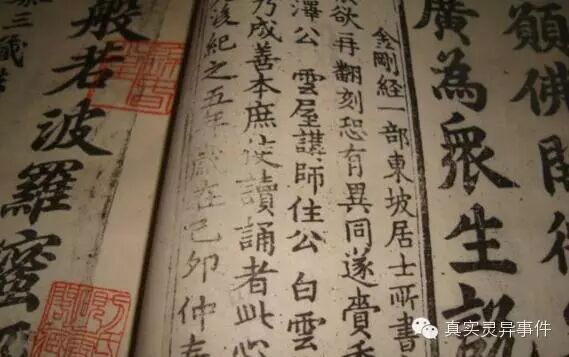 願佛開微
廣為衆生説
金剛経一部東坡居士所書
欲再翻刻恐有異同遂賷
澤公 雲屋講師住公 白雲
乃成善本庶使讀誦者此心
後紀之五年歲在己卯仲春
般若波羅蜜
三藏
真实灵异事件